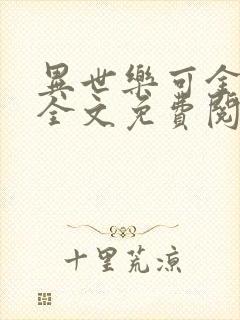 異世樂可全
全文免費閱
十里荒涼